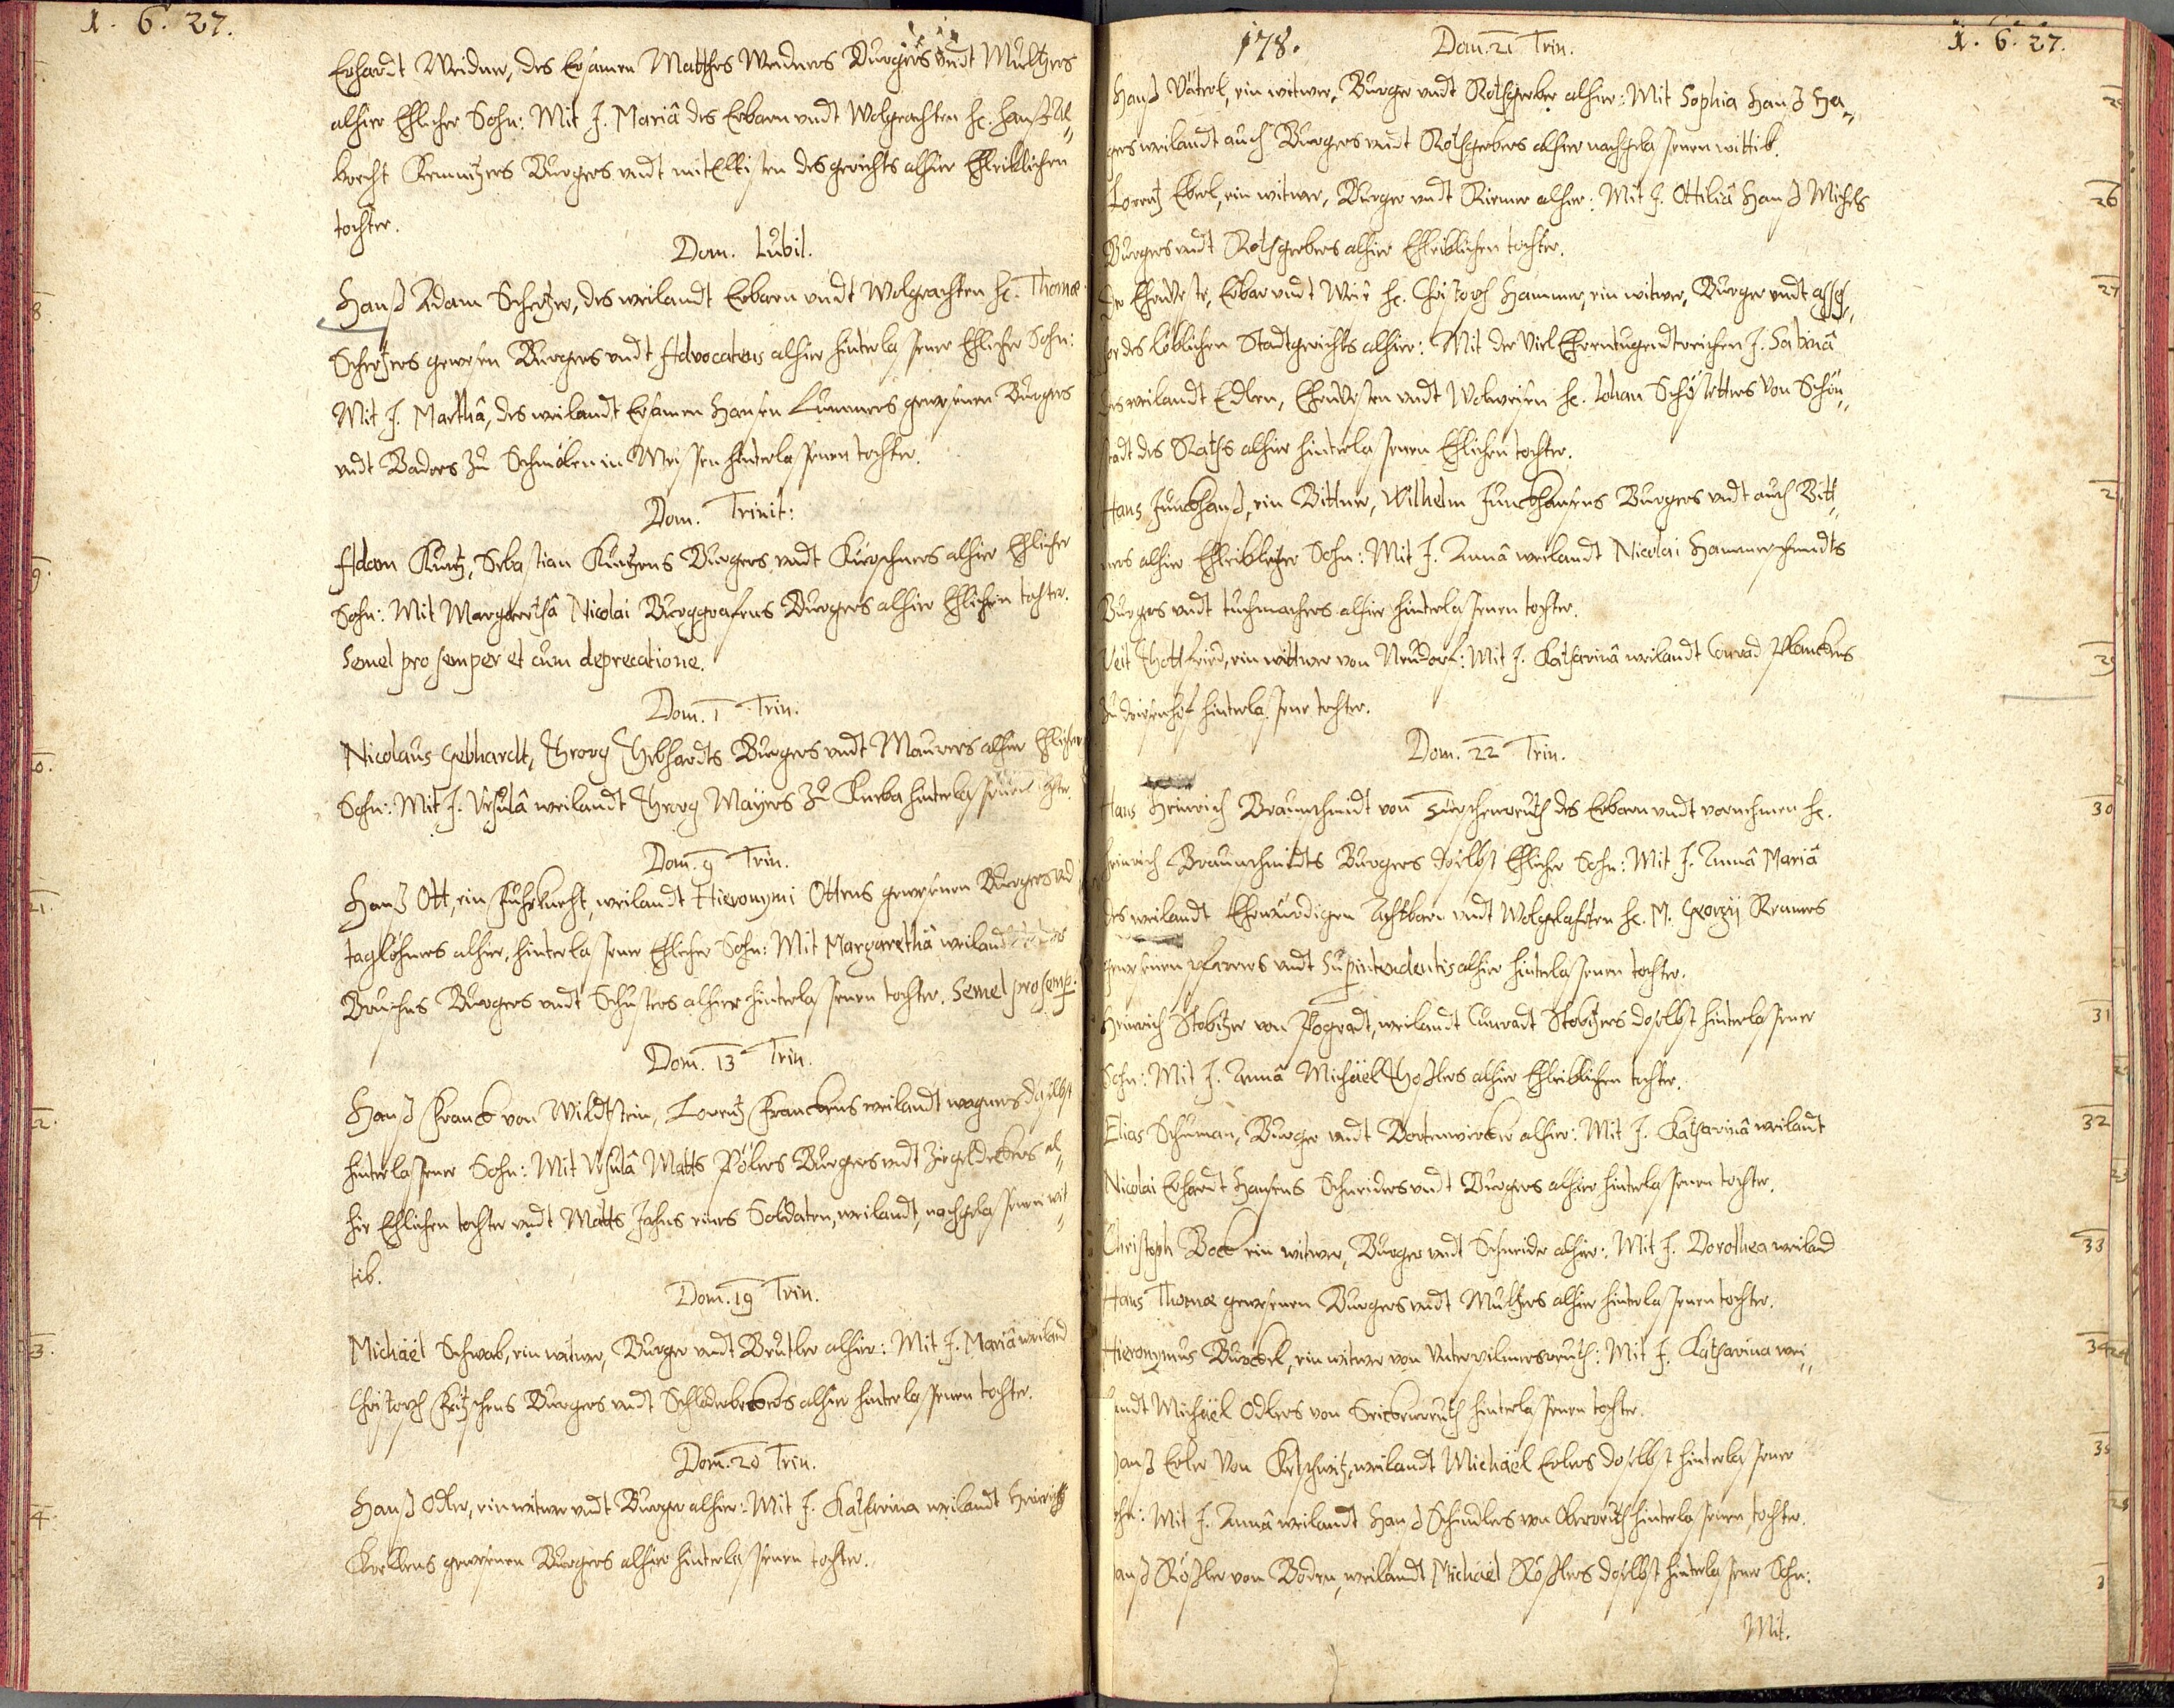 1. 6. 27.
Erhardt Weidner, des Ersamen Matthes Weidners Burgers undt Multzers
alhier Ehlicher Sohn: Mit J. Mariâ des Erbarn undt Wolgeachten H. Hanß Al„
brecht Burgers undt mitEltisten des gerichts alhier Ehleiblichen
tochter.
Dom. Iubil.
Hanß Adam Schertzer, des weilandt Erbarn undt Wolgeachten H. Thomæ
8.
Schertzers gewesen Burgers undt Advocatens alhier hinterlassener Ehlicher Sohn:
Mit J. Marthâ, des weilandt Ersamen Hansen Lummers gewesenen Burgers
undt Baders zu Schmölen in Meissen hinterlassenen tochter.
Dom. Trinit:
Adam Kurtz, Sebastian Kurtzens Burgers undt Kürschners alhier Ehlicher
9.
Sohn: Mit Margarethâ Nicolai Burggrafens Burgers alhier Ehlichen tochter.
Semel pro semper et cum deprecatione.
Dom. 1 Trin.
Nicolaus Gebhardt, Georg Gebhardts Burgers undt Maurers alhier Ehlicher
0.
Sohn: Mit J. Ursulâ weilandt Georg Mayers zu hinterlassenen tochter.
Dom. 9 Trin.
Hanß Ott, ein Fuhrknecht, weilandt Hieronymi Ottens gewesenen Burgers und
21.
taglöhners alhier, hinterlassener Ehlicher Sohn: Mit Margarethâ weilandt
Burgers undt Schusters alhier hinterlassenen tochter. Semel pro semp.
Dom. 13 Trin.
Hanß Franck von Wildtstein, Lorentz Franckens weilandt wagners daselbst
2.
hinterlassener Sohn: Mit Ursulâ Matts Pölers Burgers undt Ziegeldeckers al„
hie Ehlichen tochter undt Matts Jahns eines Soldaten, weilandt, nachgelassenen wit„
tib.
Dom. 19 Trin.
Michäel Schwab, ein witwer, Burger undt Beutler alhier: Mit J. Mariâ weiland
3.
Christoph Fritzschens Burgers undt alhier hinterlassenen tochter.
Dom. 20 Trin.
Hanß Odler, ein witwer undt Burger alhier: Mit J. Katharina weilandt Heinrich
4.
gewesenen Burgers alhier hinterlassenen tochter.
178.
Dom. 21 Trin.
1. 6. 27.
Hanß Väterl, ein witwer, Burger undt Rothgerber alhier: Mit Sophia Hanß Ha„
gers weilandt auch Burgers undt Rothgerbers alhier nachgelassenen wittib.
Lorentz Eberl, ein witwer, Burger undt Riemer alhier: Mit J. Ottiliâ Hanß Michels
26
Burgers undt Rothgerbers alhier Ehleiblichen tochter.
Der Ehrnveste, Erbar undt Weis H. Christoph Hammer, ein witwer, Burger undt assess„
27
or des löblichen Stadtgerichts alhier: Mit der Viel Ehrentugendtreichen J. Sabinâ
des weilandt Edlen, Ehrnvesten undt Wolweisen H. Iohan Schösteters Von Schön„
stadt des Raths alhier hinterlassenen Ehlichen tochter.
Hans Junckhanß, ein Bittner, Wilhelm Junckhansens Burgers undt auch Bitt„
ners alhier Ehleiblicher Sohn: Mit J. Annâ weilandt Nicolai Hammerschmidts
Burgers undt tuchmachers alhier hinterlassenen tochter.
Veit Gottfried, ein wittwer von Neudorf: Mit J. Katharinâ weilandt Conrad Planckens
29
zu hinterlassene tochter.
Dom. 22 Trin.
Hans Heinrich Braunschmidt von Türschenreuth des Erbarn undt vornehmen H.
30
Heinrich Braunschmidts Burgers doselbst Ehlicher Sohn: Mit J. Annâ Mariâ
des weilandt Ehrwürdigen Achtbarn undt Wolgelahrten H. M. Georgij Kramers
gewesenen pfarrers undt Supintendentis alhier hinterlassenen tochter.
Heinrich Stobitzer von Pograt, weilandt Cunradt Stobitzers doselbst hinterlassener
31
Sohn: Mit J. Annâ Michäel alhier Ehleiblichen tochter.
Elias Schuman, Burger undt Bortenwircker alhier: Mit J. Katharinâ weilandt
32
Nicolai Erhardt Hansens Schneiders undt Burgers alhier hinterlassenen tochter.
Christoph Bock ein witwer, Burger undt Schneider alhier: Mit J. Dorothea weiland
33
Hans Thomæ gewesenen Burgers undt Multzers alhier hinterlassenen tochter.
Hieronymus Burckel, ein witwer von Unterpilmersreuth: Mit J. Katharina wei„
34
landt Michäel Odlers von hinterlassenen tochter.
Hanß Erler Von Ketschwitz, weilandt Michäel Erlers doselbst hinterlassener
35
Sohn: Mit J. Annâ weilandt Hanß Schindlers von hinterlassenen tochter.
Hanß Rößler von Boden, weilandt Michäel Rößlers doselbst hinterlassener Sohn:
Mit.